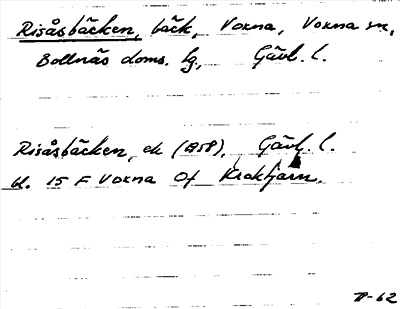 Risåsbäcken, bäck, Voxna, Voxna sn,
Bollnäs doms. hg, Gävl. l.
Risåsbäcken, ek (1958), Gävl. l.
bl. 15 F Voxna Of Kroktjärn.
-62